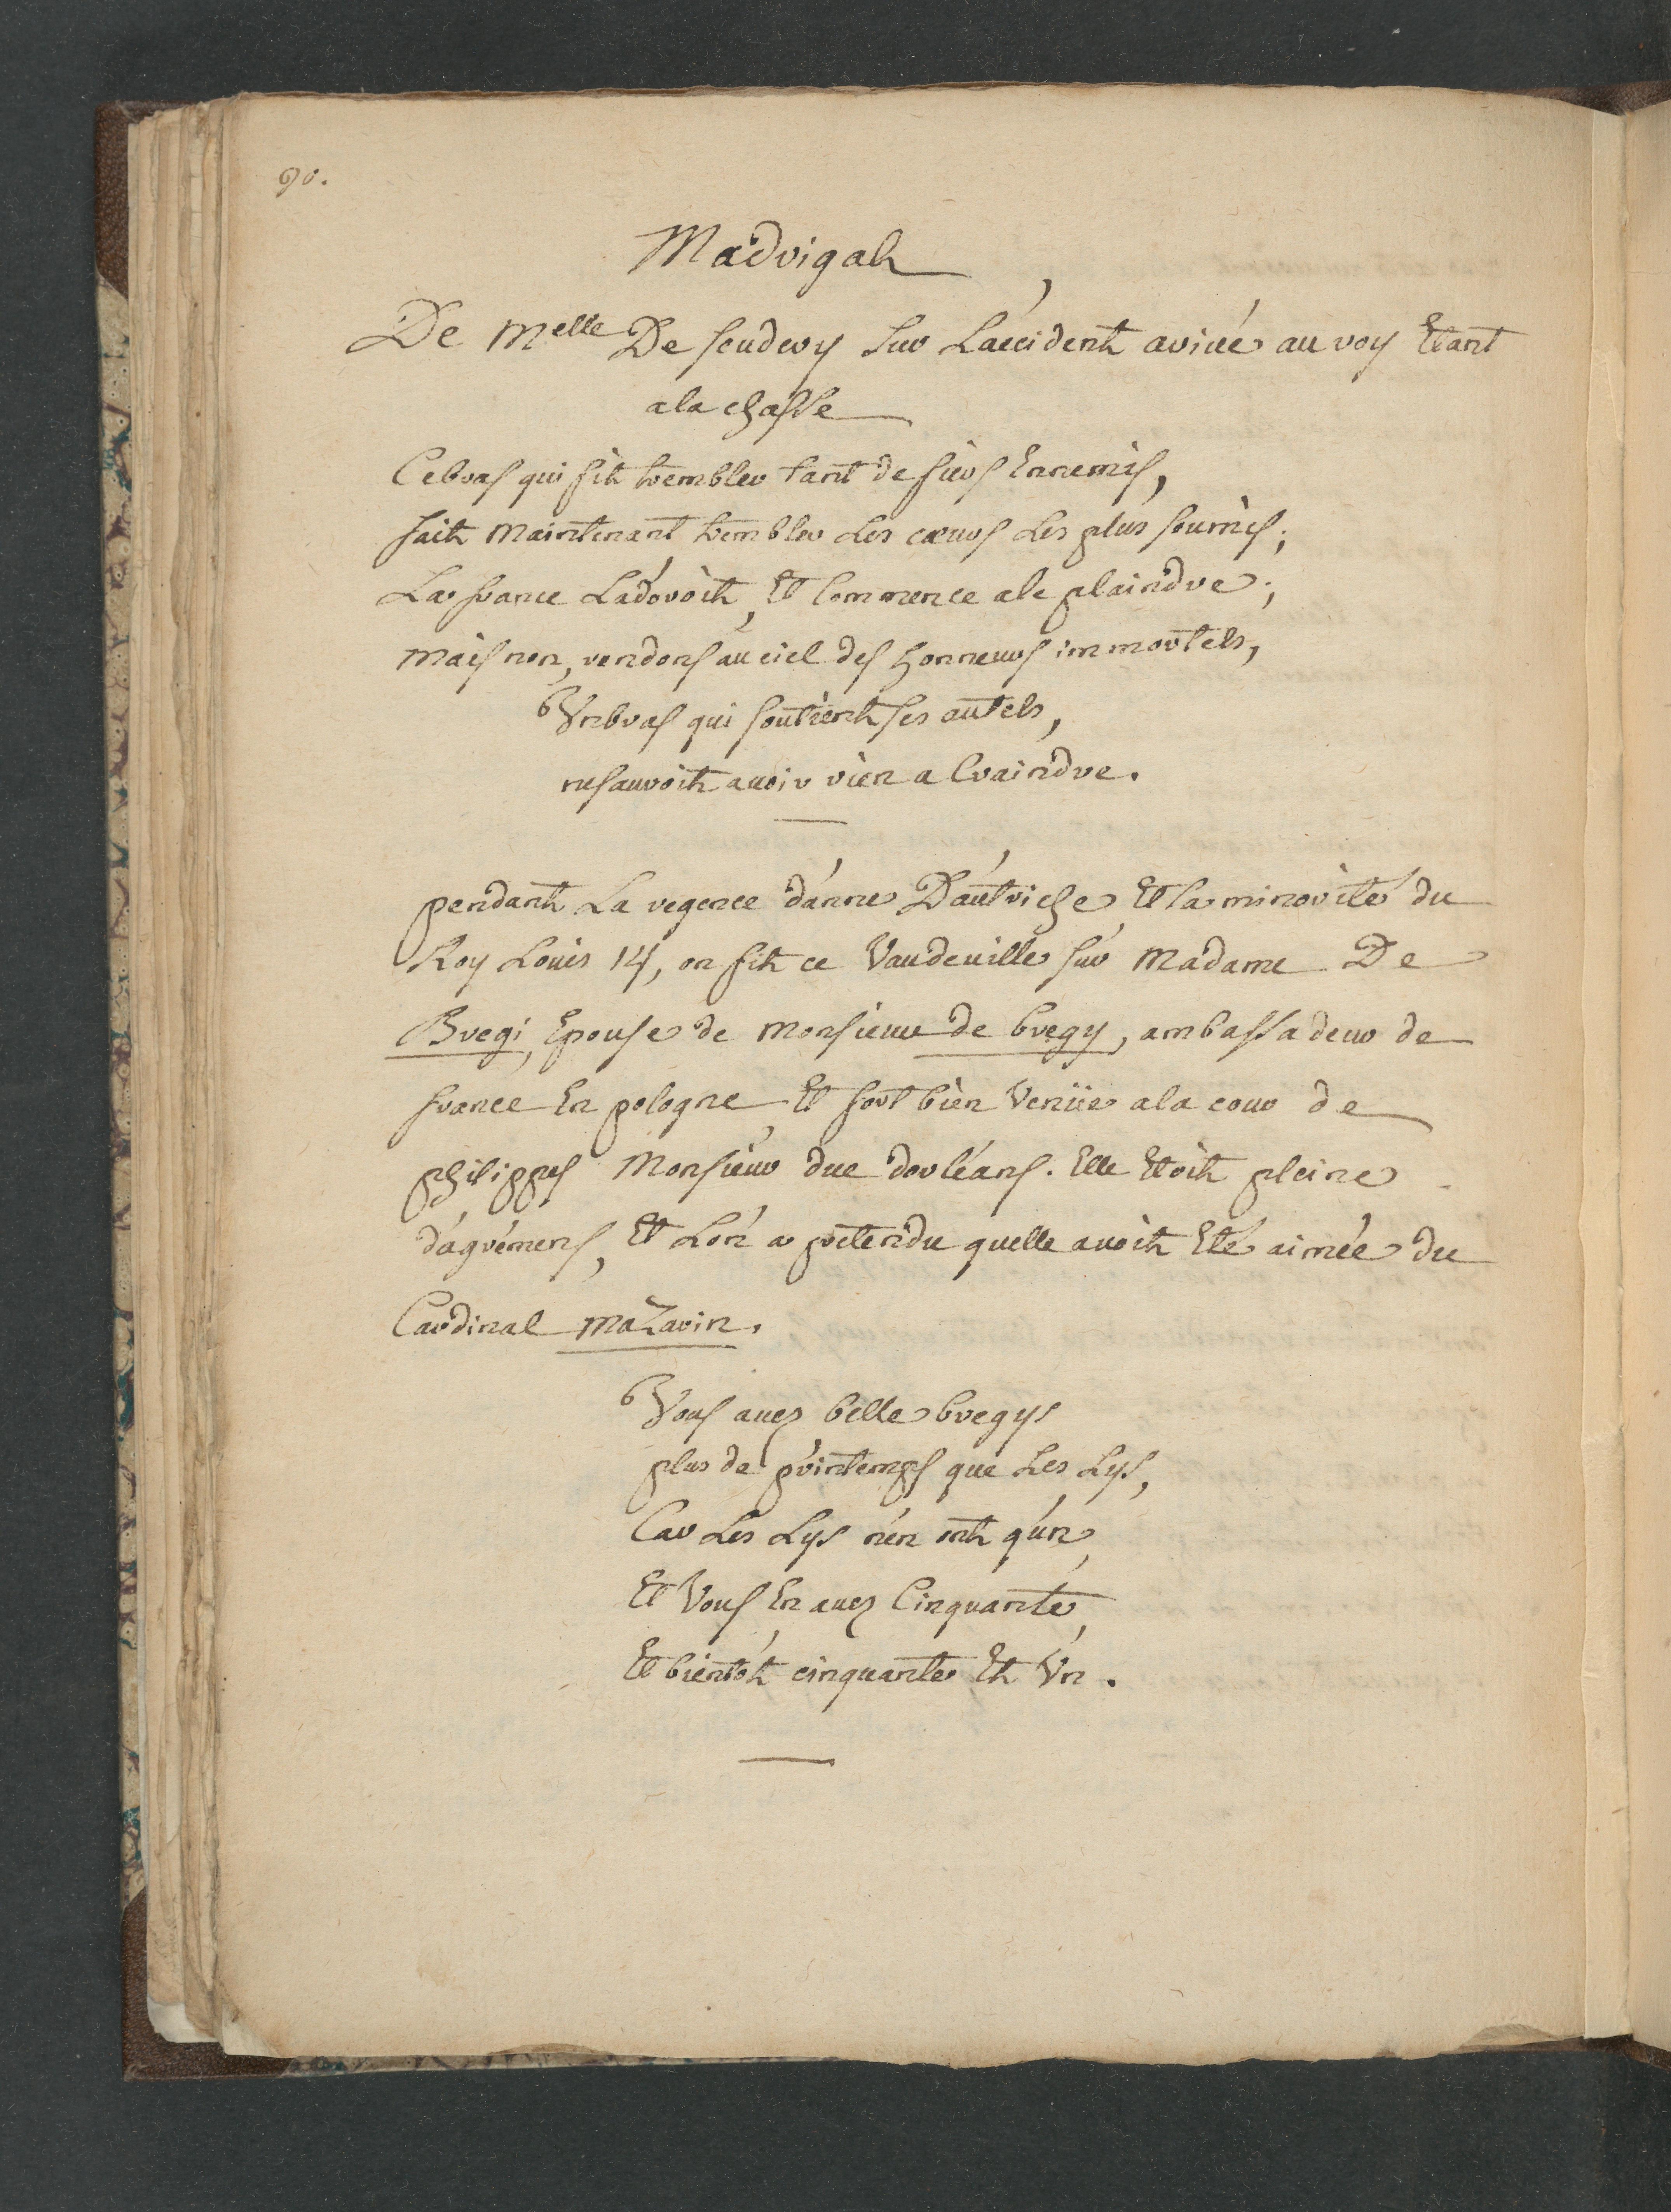 90.
Madrigal
De Melle De scudery sur L'accident arivé au roy Etant
a la chasse
Ce bras qui fit trembler tant de fiers Ennemis,
fait maintenant trembler Les cœurs Les plus soumis;
La france L'adoroit, Et Commence a le plaindre;
mais non, rendons au ciel des honneurs immortels,
Un bras qui soutient ses autels,
ne sauroit avoir rien a Craindre.
pendant La regence d'anne D'autriche Et la minorité du
Roy Louis 14, on fit ce Vaudeville sur Madame De
Bregi, Epouse de Monsieur de bregy, ambassadeur de
france En pologne, Et fort bien Venüe a la cour de
philippes Monsieur duc d'orléans. Elle Etoit pleine
d'agrémens, Et L'on a pretendu quelle avoit Eté aimée du
Cardinal mazarin.
Vous avez belle bregys
plus de printemps que Les Lys,
Car Les Lys n'en ont q'un,
Et Vous En avez Cinquante,
Et bientôt cinquante Et Un.